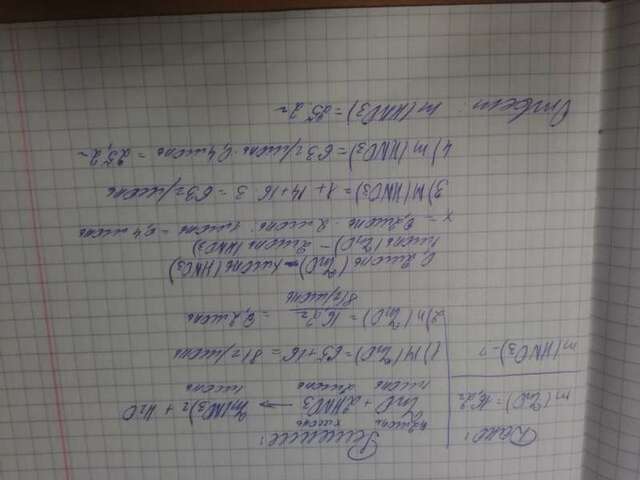 Дано:
m(ZnO)=16,2г
m(HNO3)-?
Решение:
0,2моль xмоль
ZnO + 2HNO3 → Zn(NO3)2 + H2O
1моль 2моль 1моль
1) M(ZnO)=65+16=81г/моль
2) n(ZnO)= 16,2г / 81г/моль = 0,2моль
0,2моль (ZnO) - xмоль (HNO3)
1моль (ZnO) - 2моль (HNO3)
x = 0,2моль · 2моль : 1моль = 0,4моль
3) M(HNO3)= 1+14+16·3 = 63г/моль
4) m(HNO3)=63г/моль·0,4моль = 25,2г
Ответ: m(HNO3)=25,2г